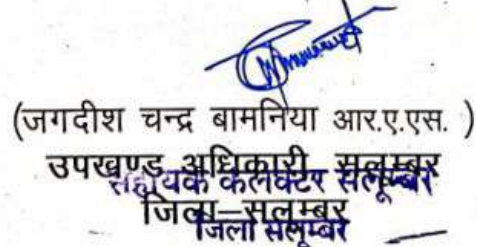 (जगदीश चन्द्र बामनिया आर.ए.एस. )
उपखण्ड अधिकारी, सलुम्बर
सहायक कलेक्टर सलूम्बर
जिला–सलुम्बर
जिला सलूम्बर